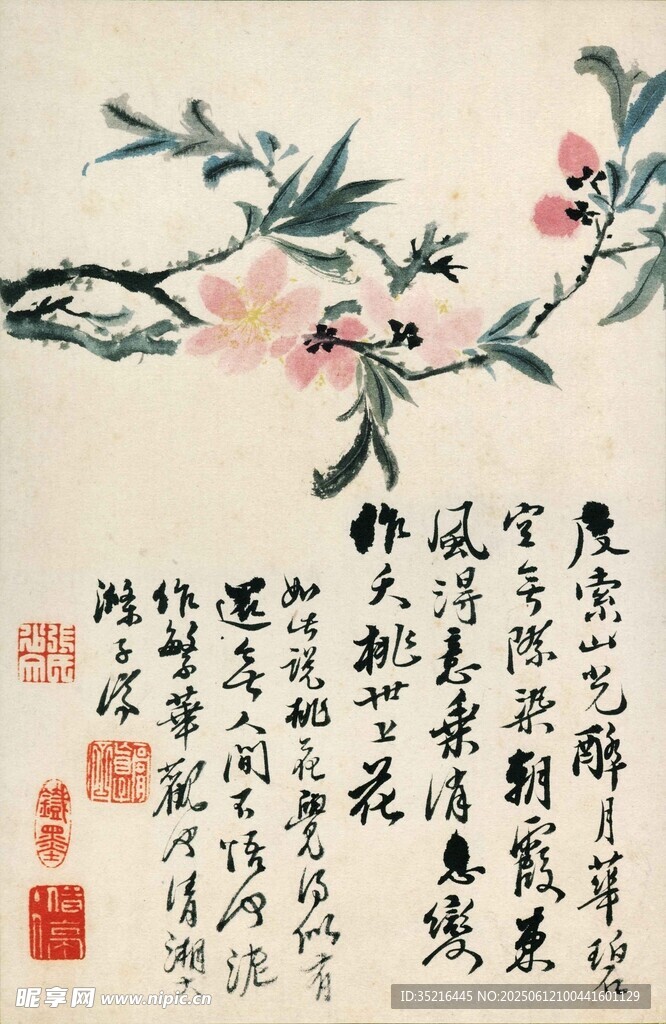 度索山光醉月華碧
空無際染朝霞東
風得意乘消息變
作夭桃世上花
如此說桃花覺得似有
還無人間不悟何泥
作繁華觀何清湘大
滌子濟
鐵墨
昵享网 www.nipic.cn
ID:35216445 NO:20250612100441601129